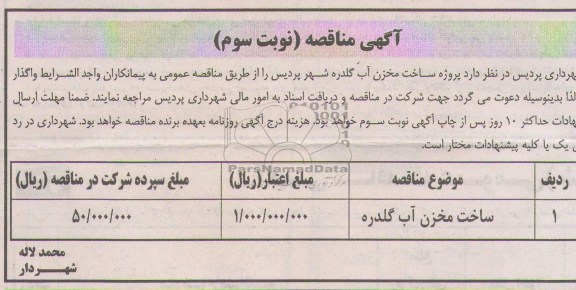 آگهی مناقصه (نوبت سوم)
شهرداری پردیس در نظر دارد پروژه ساخت مخزن آب گلدره شهر پردیس را از طریق مناقصه عمومی به پیمانکاران واجد الشرایط واگذار
لذا بدینوسیله دعوت می گردد جهت شرکت در مناقصه و دریافت اسناد به امور مالی شهرداری پردیس مراجعه نمایند. ضمنا مهلت ارسال
نهادات حداکثر ۱۰ روز پس از چاپ آگهی نوبت سوم خواهد بود. هزینه درج آگهی روزنامه بعهده برنده مناقصه خواهد بود. شهرداری در رد
یک یا کلیه پیشنهادات مختار است.
ParsNamadData
ردیف موضوع مناقصه مبلغ اعتبار(ریال) مبلغ سپرده شرکت در مناقصه (ریال)
۱ ساخت مخزن آب گلدره ۱/۰۰۰/۰۰۰/۰۰۰ ۵۰/۰۰۰/۰۰۰
محمد لاله
شهردار